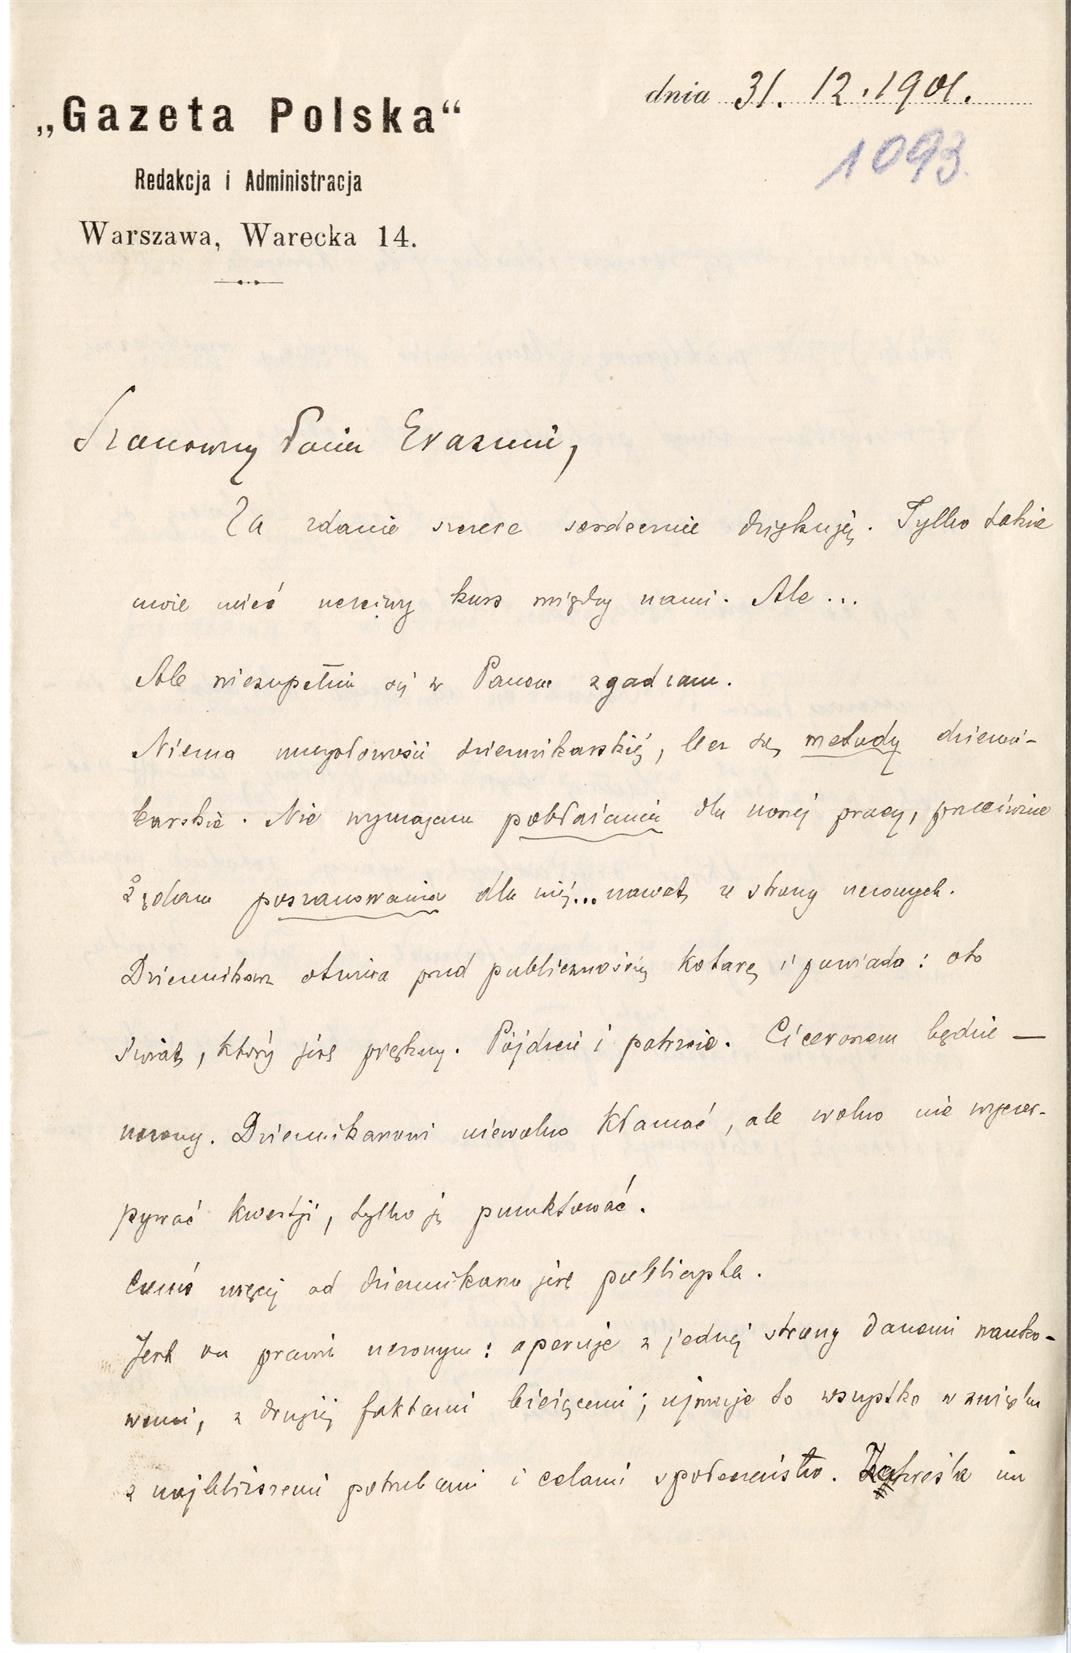 „Gazeta Polska“
Redakcja i Administracja
Warszawa, Warecka 14.
dnia 31. 12. 1901.
1093.
Szanowny Panie Erazmie,
Za zdanie szczere serdecznie dziękuję. Tylko takie
może mieć uczciwy kurs między nami. Ale...
Ale niezupełnie się z Panem zgadzam.
Niema umysłowości dziennikarskiej, lecz są metody dzienni-
karskie. Nie wymagam pobłażania dla naszej pracy, przeciwnie
żądam poszanowania dla niej... nawet ze strony uczonych.
Dziennikarz otwiera przed publicznością kotarę i powiada: oto
świat, który jest piękny. Pójdźcie i patrzcie. Ciceronem będzie —
uczony. Dziennikarzowi niewolno kłamać, ale wolno nie wyczer-
pywać kwestji, tylko ją punktować.
Czemś więcej od dziennikarza jest publicysta.
Jest on prawie uczonym: operuje z jednej strony danemi nauko-
wemi, z drugiej faktami bieżącemi; ujmuje to wszystko w związku
z najbliższemi potrzebami i celami społeczeństwa. Zakreśla im